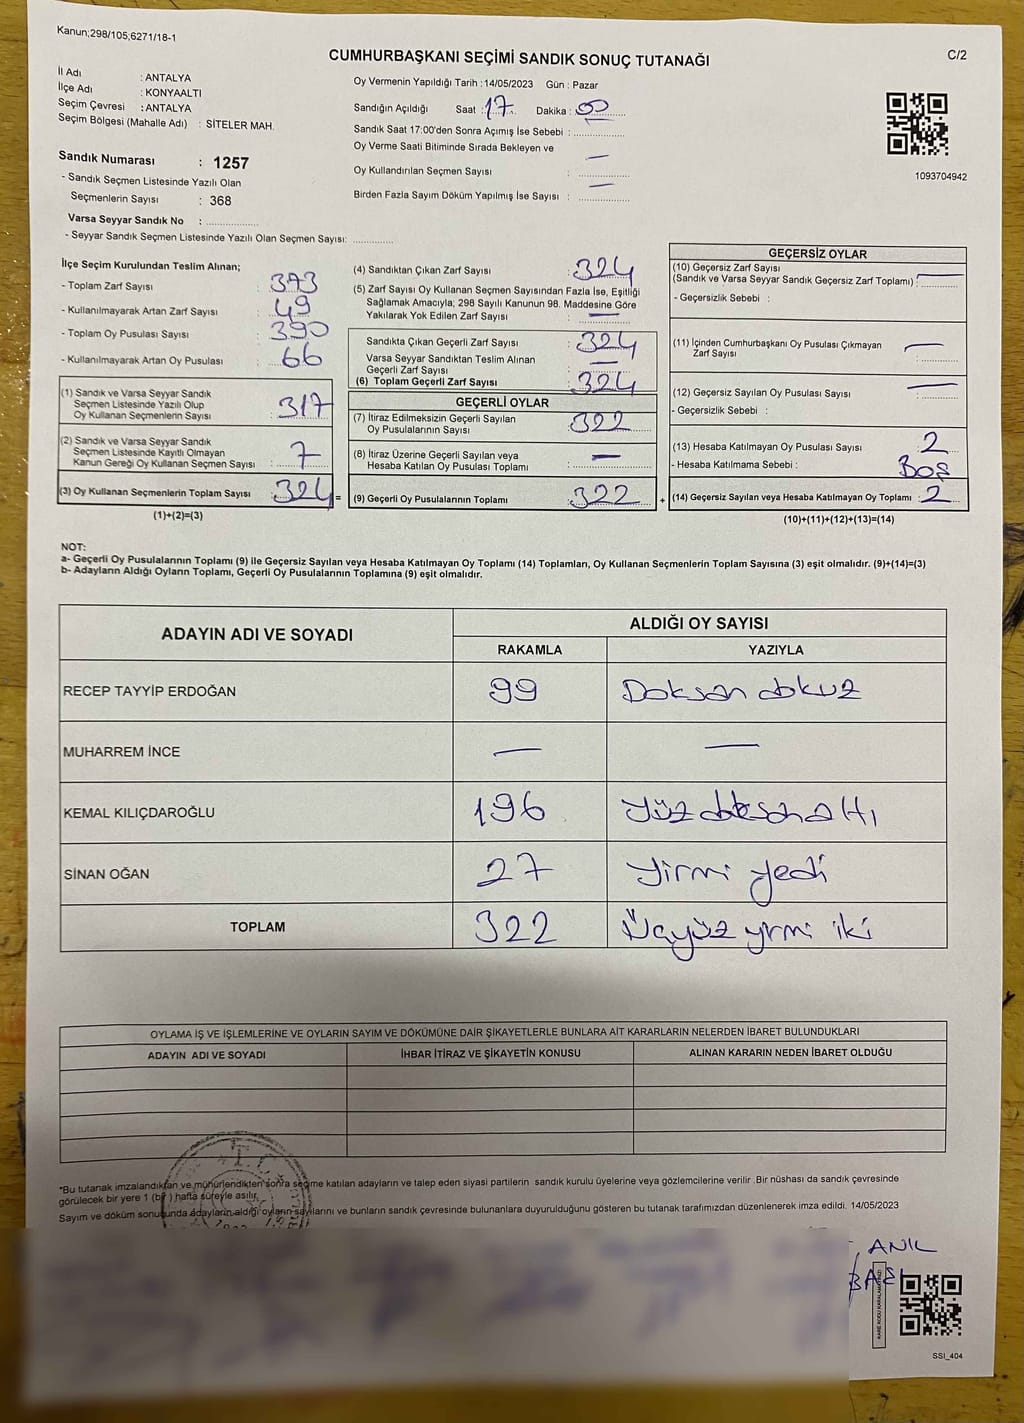 Kanun;298/105,6271/18-1
CUMHURBAŞKANI SEÇİMİ SANDIK SONUÇ TUTANAĞI
C/2
İl Adı : ANTALYA
İlçe Adı : KONYAALTI
Seçim Çevresi : ANTALYA
Seçim Bölgesi (Mahalle Adı) : SİTELER MAH.
Oy Vermenin Yapıldığı Tarih :14/05/2023 Gün : Pazar
Sandığın Açıldığı Saat : 17 Dakika : 00
Sandık Saat 17:00'den Sonra Açımış İse Sebebi :
Oy Verme Saati Bitiminde Sırada Bekleyen ve
Oy Kullandırılan Seçmen Sayısı : —
Birden Fazla Sayım Döküm Yapılmış İse Sayısı : —
1093704942
Sandık Numarası : 1257
- Sandık Seçmen Listesinde Yazılı Olan
Seçmenlerin Sayısı : 368
Varsa Seyyar Sandık No :
- Seyyar Sandık Seçmen Listesinde Yazılı Olan Seçmen Sayısı:
İlçe Seçim Kurulundan Teslim Alınan;
- Toplam Zarf Sayısı : 373
- Kullanılmayarak Artan Zarf Sayısı : 49
- Toplam Oy Pusulası Sayısı : 390
- Kullanılmayarak Artan Oy Pusulası : 66
(1) Sandık ve Varsa Seyyar Sandık
Seçmen Listesinde Yazılı Olup
Oy Kullanan Seçmenlerin Sayısı : 317
(2) Sandık ve Varsa Seyyar Sandık
Seçmen Listesinde Kayıtlı Olmayan
Kanun Gereği Oy Kullanan Seçmen Sayısı : 7
(3) Oy Kullanan Seçmenlerin Toplam Sayısı : 324 =
(1)+(2)=(3)
(4) Sandıktan Çıkan Zarf Sayısı : 324
(5) Zarf Sayısı Oy Kullanan Seçmen Sayısından Fazla İse, Eşitliği
Sağlamak Amacıyla; 298 Sayılı Kanunun 98. Maddesine Göre
Yakılarak Yok Edilen Zarf Sayısı : —
Sandıkta Çıkan Geçerli Zarf Sayısı : 324
Varsa Seyyar Sandıktan Teslim Alınan
Geçerli Zarf Sayısı : —
(6) Toplam Geçerli Zarf Sayısı : 324
GEÇERLİ OYLAR
(7) İtiraz Edilmeksizin Geçerli Sayılan
Oy Pusulalarının Sayısı : 322
(8) İtiraz Üzerine Geçerli Sayılan veya
Hesaba Katılan Oy Pusulası Toplamı : —
(9) Geçerli Oy Pusulalarının Toplamı : 322 +
GEÇERSİZ OYLAR
(10) Geçersiz Zarf Sayısı
(Sandık ve Varsa Seyyar Sandık Geçersiz Zarf Toplamı) : —
- Geçersizlik Sebebi :
(11) İçinden Cumhurbaşkanı Oy Pusulası Çıkmayan
Zarf Sayısı : —
(12) Geçersiz Sayılan Oy Pusulası Sayısı : —
- Geçersizlik Sebebi :
(13) Hesaba Katılmayan Oy Pusulası Sayısı : 2
- Hesaba Katılmama Sebebi : BOŞ
(14) Geçersiz Sayılan veya Hesaba Katılmayan Oy Toplamı : 2
(10)+(11)+(12)+(13)=(14)
NOT:
a- Geçerli Oy Pusulalarının Toplamı (9) ile Geçersiz Sayılan veya Hesaba Katılmayan Oy Toplamı (14) Toplamları, Oy Kullanan Seçmenlerin Toplam Sayısına (3) eşit olmalıdır. (9)+(14)=(3)
b- Adayların Aldığı Oyların Toplamı, Geçerli Oy Pusulalarının Toplamına (9) eşit olmalıdır.
ADAYIN ADI VE SOYADI ALDIĞI OY SAYISI
RAKAMLA YAZIYLA
RECEP TAYYİP ERDOĞAN 99 Doksan dokuz
MUHARREM İNCE — —
KEMAL KILIÇDAROĞLU 196 Yüz doksan altı
SİNAN OĞAN 27 Yirmi yedi
TOPLAM 322 Üçyüz yirmi iki
OYLAMA İŞ VE İŞLEMLERİNE VE OYLARIN SAYIM VE DÖKÜMÜNE DAİR ŞİKAYETLERLE BUNLARA AİT KARARLARIN NELERDEN İBARET BULUNDUKLARI
ADAYIN ADI VE SOYADI İHBAR İTİRAZ VE ŞİKAYETİN KONUSU ALINAN KARARIN NEDEN İBARET OLDUĞU
T.C.
*Bu tutanak imzalandıktan ve mühürlendikten sonra seçime katılan adayların ve talep eden siyasi partilerin sandık kurulu üyelerine veya gözlemcilerine verilir. Bir nüshası da sandık çevresinde
görülecek bir yere 1 (bir) hafta süreyle asılır.
Sayım ve döküm sonucunda adayların aldığı oyların sayılarını ve bunların sandık çevresinde bulunanlara duyurulduğunu gösteren bu tutanak tarafımızdan düzenlenerek imza edildi. 14/05/2023
ANIL
KARE KODU KARALAMAYINIZ!
SSI_404